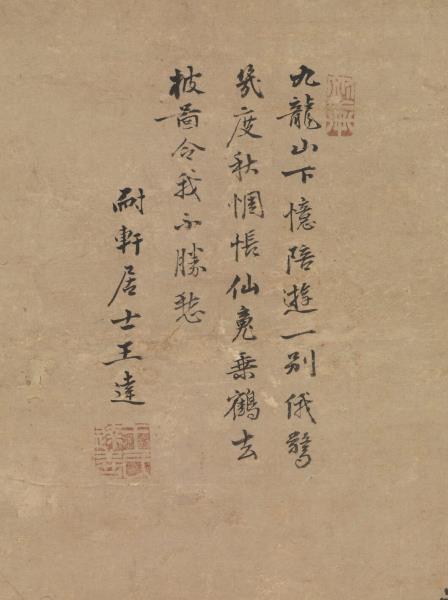 九龍山下憶陪遊一別俄驚
幾度秋惆悵仙䰟乗鶴去
披圖令我不勝愁
耐軒居士王達